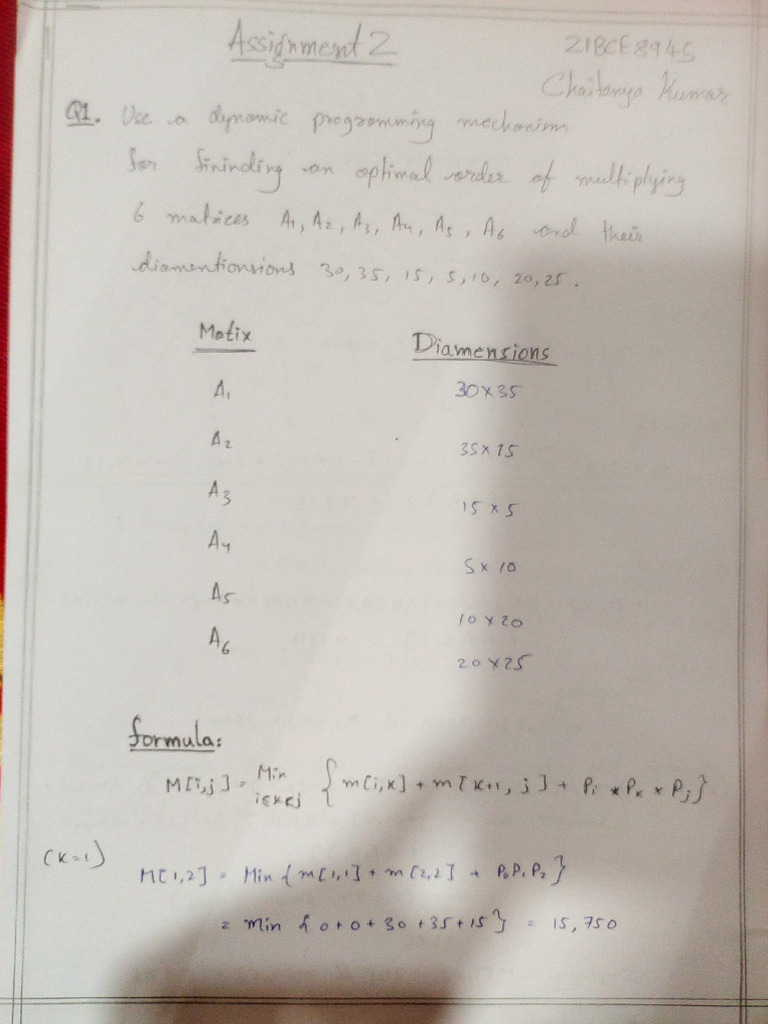 Assignment 2
21BCE8945
Chaitanya Kumar
Q1. Use a dynamic programming mechanism
for fininding an optimal order of multiplying
6 matrices A1, A2, A3, A4, A5, A6 and their
diamentionsions 30, 35, 15, 5, 10, 20, 25.
Matix Diamensions
A1 30 x 35
A2 35 x 15
A3 15 x 5
A4 5 x 10
A5 10 x 20
A6 20 x 25
formula:
M[i,j] = Min i≤k≤j { m[i,k] + m[k+1, j] + Pi * Pk * Pj }
(K=1)
M[1,2] = Min { m[1,1] + m[2,2] + P0P1P2 }
= min { 0 + 0 + 30 + 35 + 15 } = 15,750